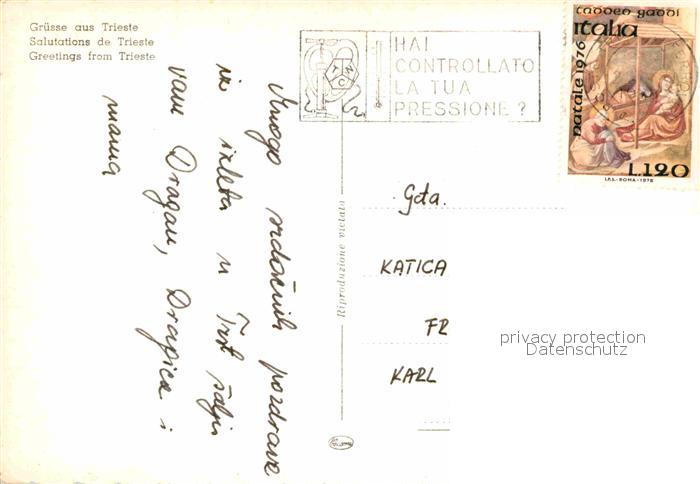 Grüsse aus Trieste
Salutations de Trieste
Greetings from Trieste
HAI
CONTROLLATO
LA TUA
PRESSIONE ?
TADDEO GADDI
italia
natale 1976
L.120
I.P.S.-ROMA-1976
Mnogo srdačnih pozdrava
iz izleta u Trst šalju
vam Dragan, Dragica i
mama
Riproduzione vietata
Gđa.
KATICA
FR
KARL
privacy protection
Datenschutz